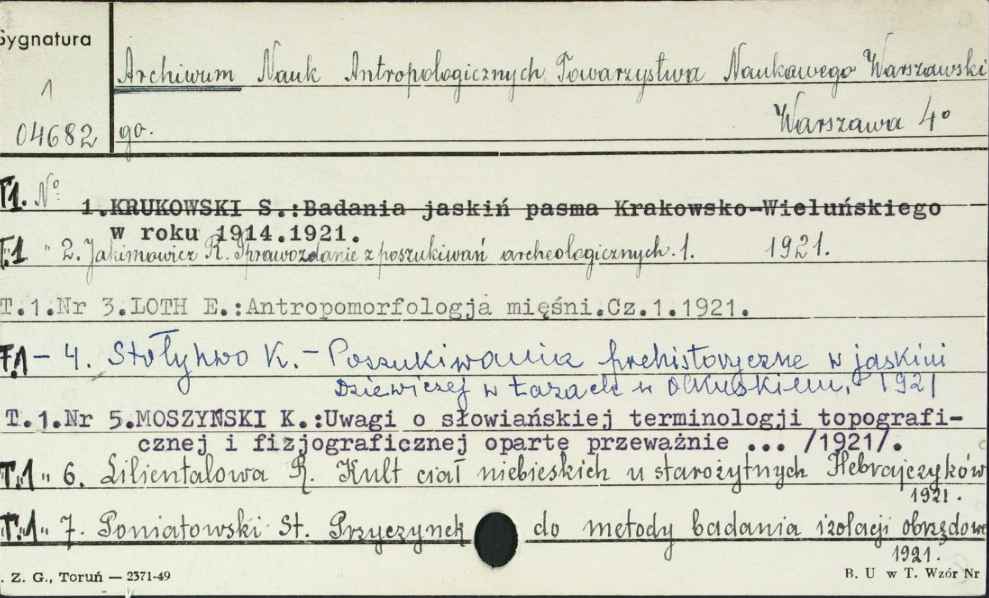 Sygnatura
1
04682
Archiwum Nauk Antropologicznych Towarzystwa Naukowego Warszawski
go.
Warszawa 4°
T1. N° 1.KRUKOWSKI S.:Badania jaskiń pasma Krakowsko-Wieluńskiego
w roku 1914.1921.
T.1 " 2. Jakimowicz R. Sprawozdanie z poszukiwań archeologicznych. 1. 1921.
T.1.Nr 3.LOTH E.:Antropomorfologja mięśni.Cz.1.1921.
T.1 - 4. Stołyhwo K. - Poszukiwania prehistoryczne w jaskini
Dziewiczej w Łazach w Olkuskiem. 1921
T.1.Nr 5.MOSZYŃSKI K.:Uwagi o słowiańskiej terminologji topografi-
cznej i fizjograficznej opartę przeważnie ... /1921/.
T.1 " 6. Lilientalowa R. Kult ciał niebieskich u starożytnych Hebrajczyków
1921.
T.1 " 7. Poniatowski St. Przyczynek do metody badania izolacji obrzędowe
1921.
. Z. G., Toruń — 2371-49
B. U w T. Wzór Nr